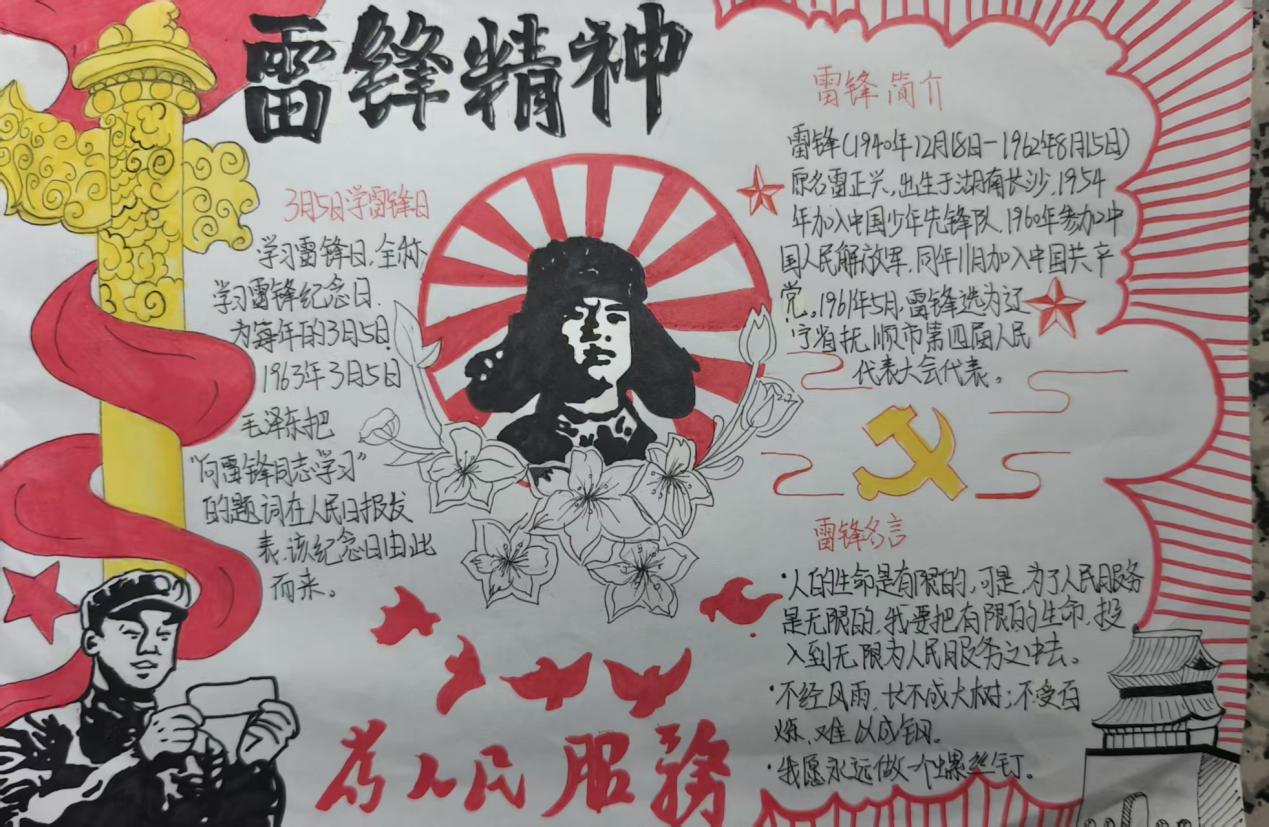 雷锋精神
3月5日学雷锋日
学习雷锋日,全称
学习雷锋纪念日,
为每年的3月5日,
1963年3月5日
毛泽东把
“向雷锋同志学习”
的题词在人民日报发
表,该纪念日由此
而来。
雷锋简介
雷锋(1940年12月18日-1962年8月15日)
原名雷正兴,出生于湖南长沙,1954
年加入中国少年先锋队,1960年参加中
国人民解放军,同年11月加入中国共产
党。1961年5月,雷锋选为辽
宁省抚顺市第四届人民
代表大会代表。
雷锋名言
·人的生命是有限的,可是,为了人民服务
是无限的,我要把有限的生命,投
入到无限为人民服务之中去。
·不经风雨,长不成大树;不受百
炼,难以成钢。
·我愿永远做一个螺丝钉。
为人民服務